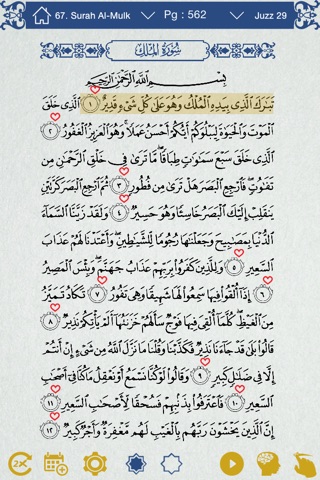 67. Surah Al-Mulk
Pg : 562
Juzz 29
سُورَةُ المُلْكِ
بِسْمِ اللَّهِ الرَّحْمَٰنِ الرَّحِيمِ
تَبَٰرَكَ الَّذِي بِيَدِهِ الْمُلْكُ وَهُوَ عَلَىٰ كُلِّ شَيْءٍ قَدِيرٌ ١ الَّذِي خَلَقَ
الْمَوْتَ وَالْحَيَوٰةَ لِيَبْلُوَكُمْ أَيُّكُمْ أَحْسَنُ عَمَلًا ۚ وَهُوَ الْعَزِيزُ الْغَفُورُ ٢
الَّذِي خَلَقَ سَبْعَ سَمَٰوَٰتٍ طِبَاقًا ۖ مَّا تَرَىٰ فِي خَلْقِ الرَّحْمَٰنِ مِن
تَفَٰوُتٍ ۖ فَارْجِعِ الْبَصَرَ هَلْ تَرَىٰ مِن فُطُورٍ ٣ ثُمَّ ارْجِعِ الْبَصَرَ كَرَّتَيْنِ
يَنقَلِبْ إِلَيْكَ الْبَصَرُ خَاسِئًا وَهُوَ حَسِيرٌ ٤ وَلَقَدْ زَيَّنَّا السَّمَآءَ
الدُّنْيَا بِمَصَٰبِيحَ وَجَعَلْنَٰهَا رُجُومًا لِّلشَّيَٰطِينِ ۖ وَأَعْتَدْنَا لَهُمْ عَذَابَ
السَّعِيرِ ٥ وَلِلَّذِينَ كَفَرُوا بِرَبِّهِمْ عَذَابُ جَهَنَّمَ ۖ وَبِئْسَ الْمَصِيرُ
٦ إِذَآ أُلْقُوا فِيهَا سَمِعُوا لَهَا شَهِيقًا وَهِيَ تَفُورُ ٧ تَكَادُ تَمَيَّزُ
مِنَ الْغَيْظِ ۖ كُلَّمَآ أُلْقِيَ فِيهَا فَوْجٌ سَأَلَهُمْ خَزَنَتُهَآ أَلَمْ يَأْتِكُمْ نَذِيرٌ
٨ قَالُوا بَلَىٰ قَدْ جَآءَنَا نَذِيرٌ فَكَذَّبْنَا وَقُلْنَا مَا نَزَّلَ اللَّهُ مِن شَيْءٍ إِنْ أَنتُمْ
إِلَّا فِي ضَلَٰلٍ كَبِيرٍ ٩ وَقَالُوا لَوْ كُنَّا نَسْمَعُ أَوْ نَعْقِلُ مَا كُنَّا فِيٓ أَصْحَٰبِ
السَّعِيرِ ١٠ فَاعْتَرَفُوا بِذَنۢبِهِمْ فَسُحْقًا لِّأَصْحَٰبِ السَّعِيرِ ١١
إِنَّ الَّذِينَ يَخْشَوْنَ رَبَّهُم بِالْغَيْبِ لَهُم مَّغْفِرَةٌ وَأَجْرٌ كَبِيرٌ ١٢
2X